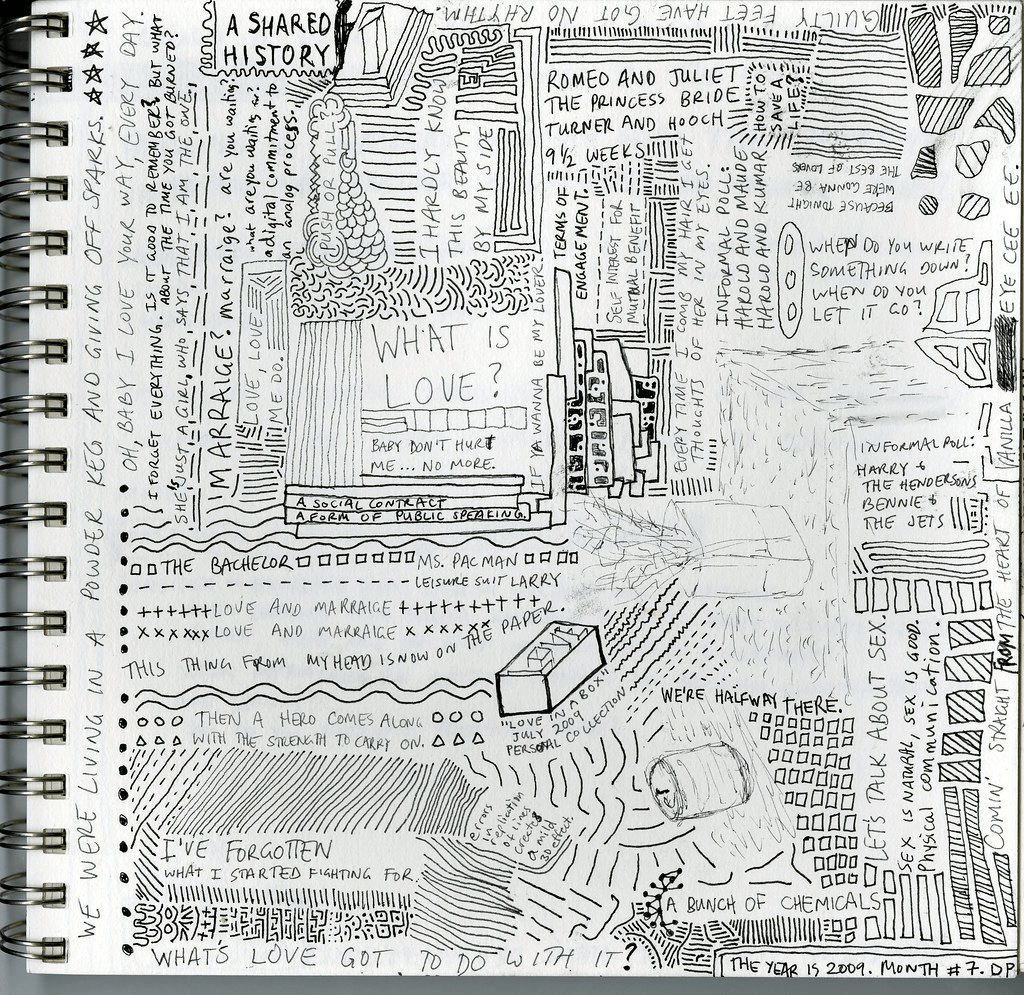 A SHARED
HISTORY
GUILTY FEET HAVE GOT NO RHYTHM.
WE WERE LIVING IN A POWDER KEG AND GIVING OFF SPARKS.
OH, BABY I LOVE YOUR WAY, EVERY DAY.
I FORGET EVERYTHING. IS IT GOOD TO REMEMBER? BUT WHAT
ABOUT THE TIME YOU GOT BURNED?
SHE'S JUST A GIRL, WHO SAYS THAT I AM THE ONE.
'MARRAIGE? marraige? are you waiting?
what are you waiting for?
a digital commitment to
an analog process.
PUSH OR PULL?
I HARDLY KNOW
THIS BEAUTY
BY MY SIDE
ROMEO AND JULIET
THE PRINCESS BRIDE
TURNER AND HOOCH
9½ WEEKS
HOW TO
SAVE A
LIFE?
BECAUSE TONIGHT
WE'RE GONNA BE
THE BEST OF LOVERS
TERMS OF
ENGAGEMENT.
SELF INTEREST FOR
MUTUAL BENEFIT
EVERY TIME I COMB MY HAIR I GET
THOUGHTS OF HER IN MY EYES.
INFORMAL POLL:
HAROLD AND MAUDE
HAROLD AND KUMAR
WHEN DO YOU WRITE
SOMETHING DOWN?
WHEN DO YOU
LET IT GO?
LOVE, LOVE
ME DO.
WHAT IS
LOVE?
BABY DON'T HURT
ME... NO MORE.
IF YA WANNA BE MY LOVER
A SOCIAL CONTRACT
A FORM OF PUBLIC SPEAKING.
INFORMAL POLL:
HARRY &
THE HENDERSONS
BENNIE &
THE JETS
COMIN' STRAIGHT FROM THE HEART OF VANILLA
EYE CEE EE.
THE BACHELOR
MS. PACMAN
LEISURE SUIT LARRY
LOVE AND MARRAIGE
LOVE AND MARRAIGE
THIS THING FROM MY HEAD IS NOW ON THE PAPER.
LOVE
"LOVE IN A BOX"
JULY 2009
PERSONAL COLLECTION
THEN A HERO COMES ALONG
WITH THE STRENGTH TO CARRY ON.
WE'RE HALFWAY THERE.
LET'S TALK ABOUT SEX.
SEX IS NATURAL, SEX IS GOOD.
Physical communication.
errors
in
replication
of lines
creates
a mild
3D effect.
I'VE FORGOTTEN
WHAT I STARTED FIGHTING FOR.
A BUNCH OF CHEMICALS
WHAT'S LOVE GOT TO DO WITH IT?
THE YEAR IS 2009. MONTH #7. DP